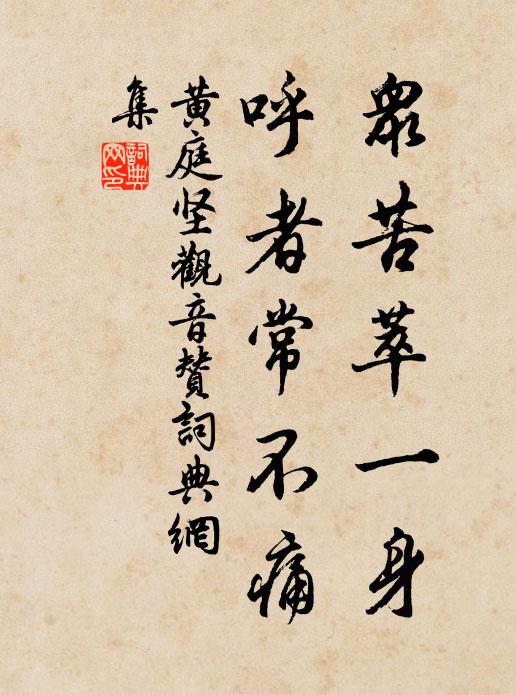 眾苦萃一身
呼者常不痛
黄庭坚觀音賛詞典網
集
詞典
网印